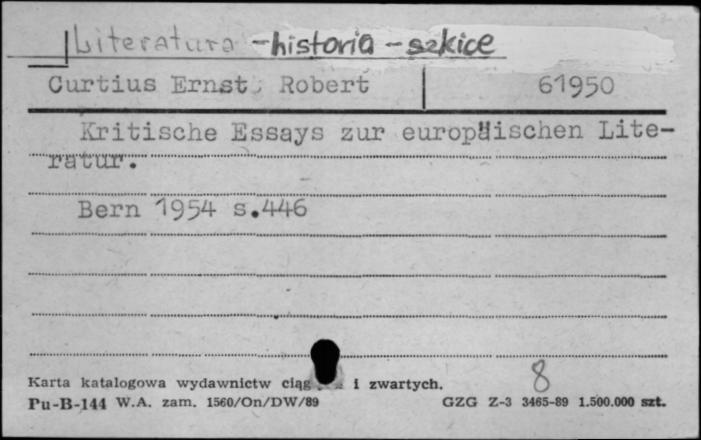 Literatura - historia - szkice
Curtius Ernst Robert 61950
Kritische Essays zur europäischen Lite-
ratur.
Bern 1954 s.446
8
Karta katalogowa wydawnictw ciąg i zwartych.
Pu-B-144 W.A. zam. 1560/On/DW/89 GZG Z-3 3465-89 1.500.000 szt.